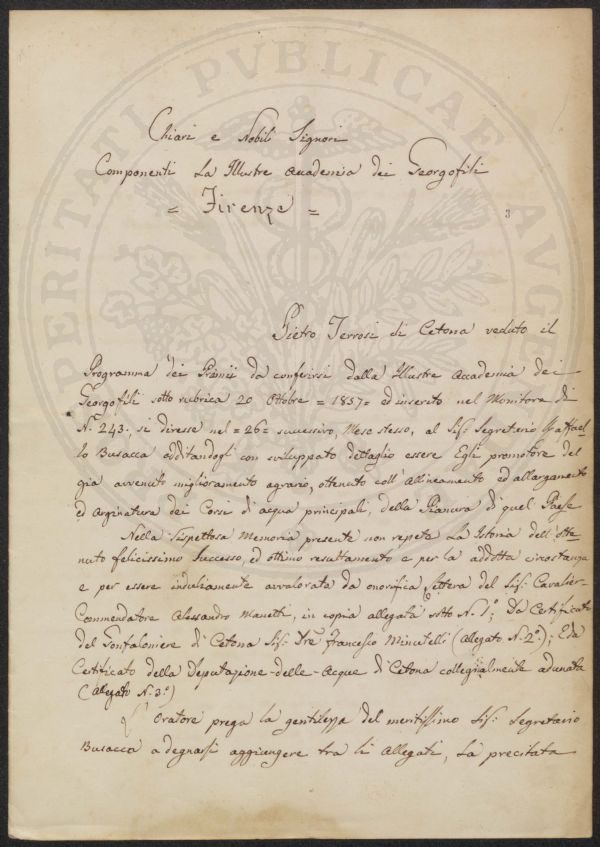 Chiari e Nobili Signori
Componenti La Illustre Accademia dei Georgofili
= Firenze =
3
Pietro Terrosi di Cetona veduto il
Programma dei Premii da conferirsi dalla Illustre Accademia dei
Georgofili sotto rubrica 20 Ottobre = 1857 = ed inserito nel Monitore di
N.º 243., si diresse nel = 26 = successivo, Mese stesso, al Sig: Segretario Raffael-
lo Busacca additandogli con sviluppato dettaglio essere Egli promotore del
già avvenuto miglioramento agrario, ottenuto coll'Allineamento ed allargamento
ed Arginatura dei Corsi di acqua principali, della Pianura di quel Paese
Nella rispettosa Memoria presente non repeta La Istoria dell'otte-
nuto felicissimo Successo, ed ottimo resultamento e per la addotta circostanza
e per essere avvalorata da onorifica Lettera del Sig: Cavalier
Commendatore Alessandro Manetti, in copia allegata sotto N. 1º; Da Certificato
del Gonfaloniere di Cetona Sig: Francesco Minutelli (Alegato N. 2º); E da
Certificato della Deputazione delle Acque di Cetona collegialmente adunata
(Alegato N. 3º)
L'Oratore prega la gentilezza del meritissimo Sig: Segretario
Busacca a degnarsi aggiungere tra li Allegati, La precitata
PERITATI PVBLICAE AVGE